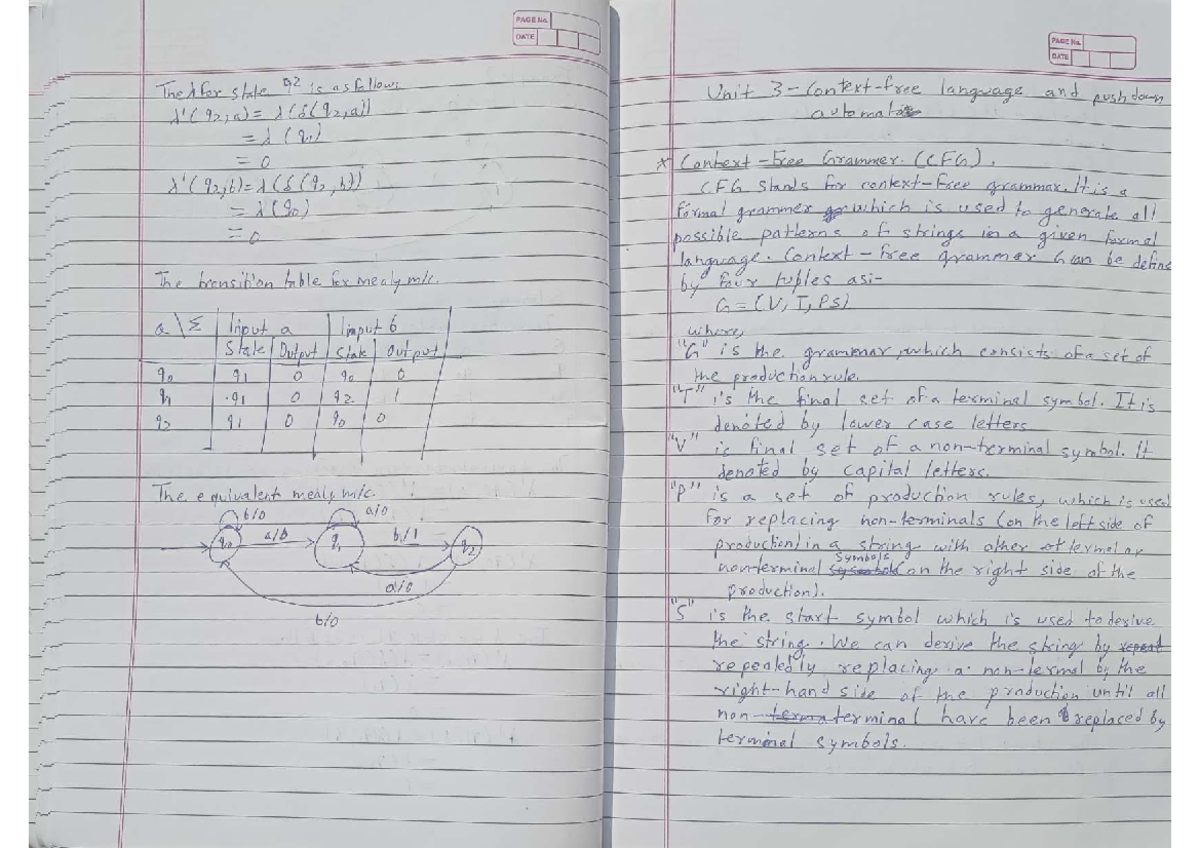 PAGE No.
DATE
The λ for state q2 is as follows
λ'(q2,a) = λ(δ(q2,a))
= λ(q1)
= 0
λ'(q2,b) = λ(δ(q2,b))
= λ(q0)
= 0
The transition table for mealy m/c.
Q \ Σ | Input a | Input b
State | Output | State | Output
q0 q1 0 q0 0
q1 q1 0 q2 1
q2 q1 0 q0 0
The equivalent mealy m/c.
b/0 a/0
q0 a/0 q1 b/1 q2
a/0
b/0
PAGE No.
DATE
Unit 3 - Context-free language and pushdown
automata
* Context-free Grammer (CFG).
CFG stands for context-free grammar. It is a
formal grammer which is used to generate all
possible patterns of strings in a given formal
language. Context-free grammer G can be define
by four tuples as:-
G = (V, T, P, S)
where,
"G" is the grammar, which consists of a set of
the production rule.
"T" is the final set of a terminal symbol. It is
denoted by lower case letters
"V" is final set of a non-terminal symbol. It
denoted by capital letters.
"P" is a set of production rules, which is used
for replacing non-terminals (on the left side of
production) in a string with other
non-terminal symbols (on the right side of the
production).
"S" is the start symbol which is used to derive
the string. We can derive the string by
repeatedly replacing a non-termal by the
right-hand side of the production until all
non-terminal have been replaced by
terminal symbols.